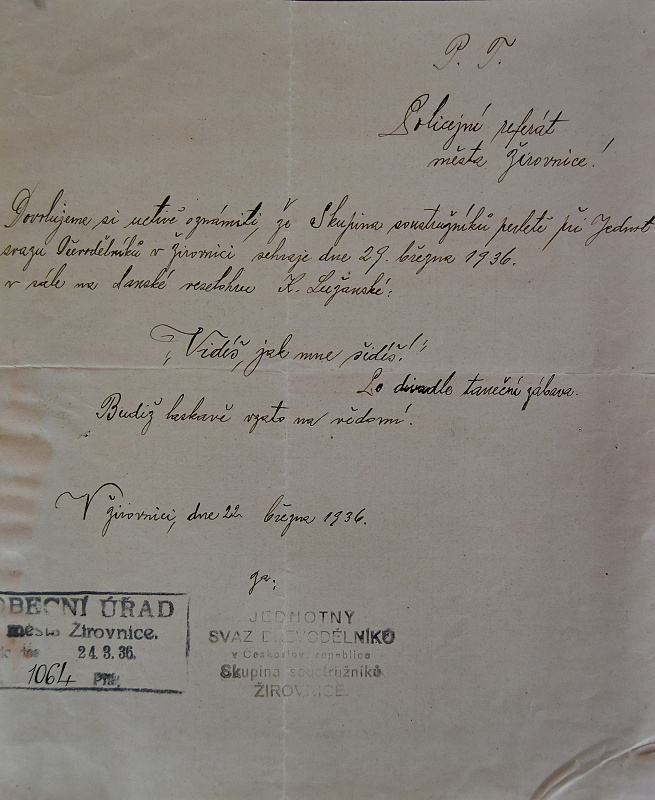 P. T.
Policejní referát
města Žirovnice!
Dovolujeme si uctivě oznámiti, že Skupina soustružníků perletě při Jednot
svazu Dřevodělníků v Žirovnici sehraje dne 29. března 1936.
v sále na veselohru K. Lužanské:
"Vidíš, jak mne šidíš!"
Po divadlo taneční zábava.
Budiž laskavě vzato na vědomí.
V Žirovnici, dne 22 března 1936.
za:
OBECNÍ ÚŘAD
města Žirovnice.
24.3.36.
1064
JEDNOTNÝ
SVAZ DŘEVODĚLNÍKŮ
v Českoslov. republice
Skupina soustružníků
ŽIROVNICE.